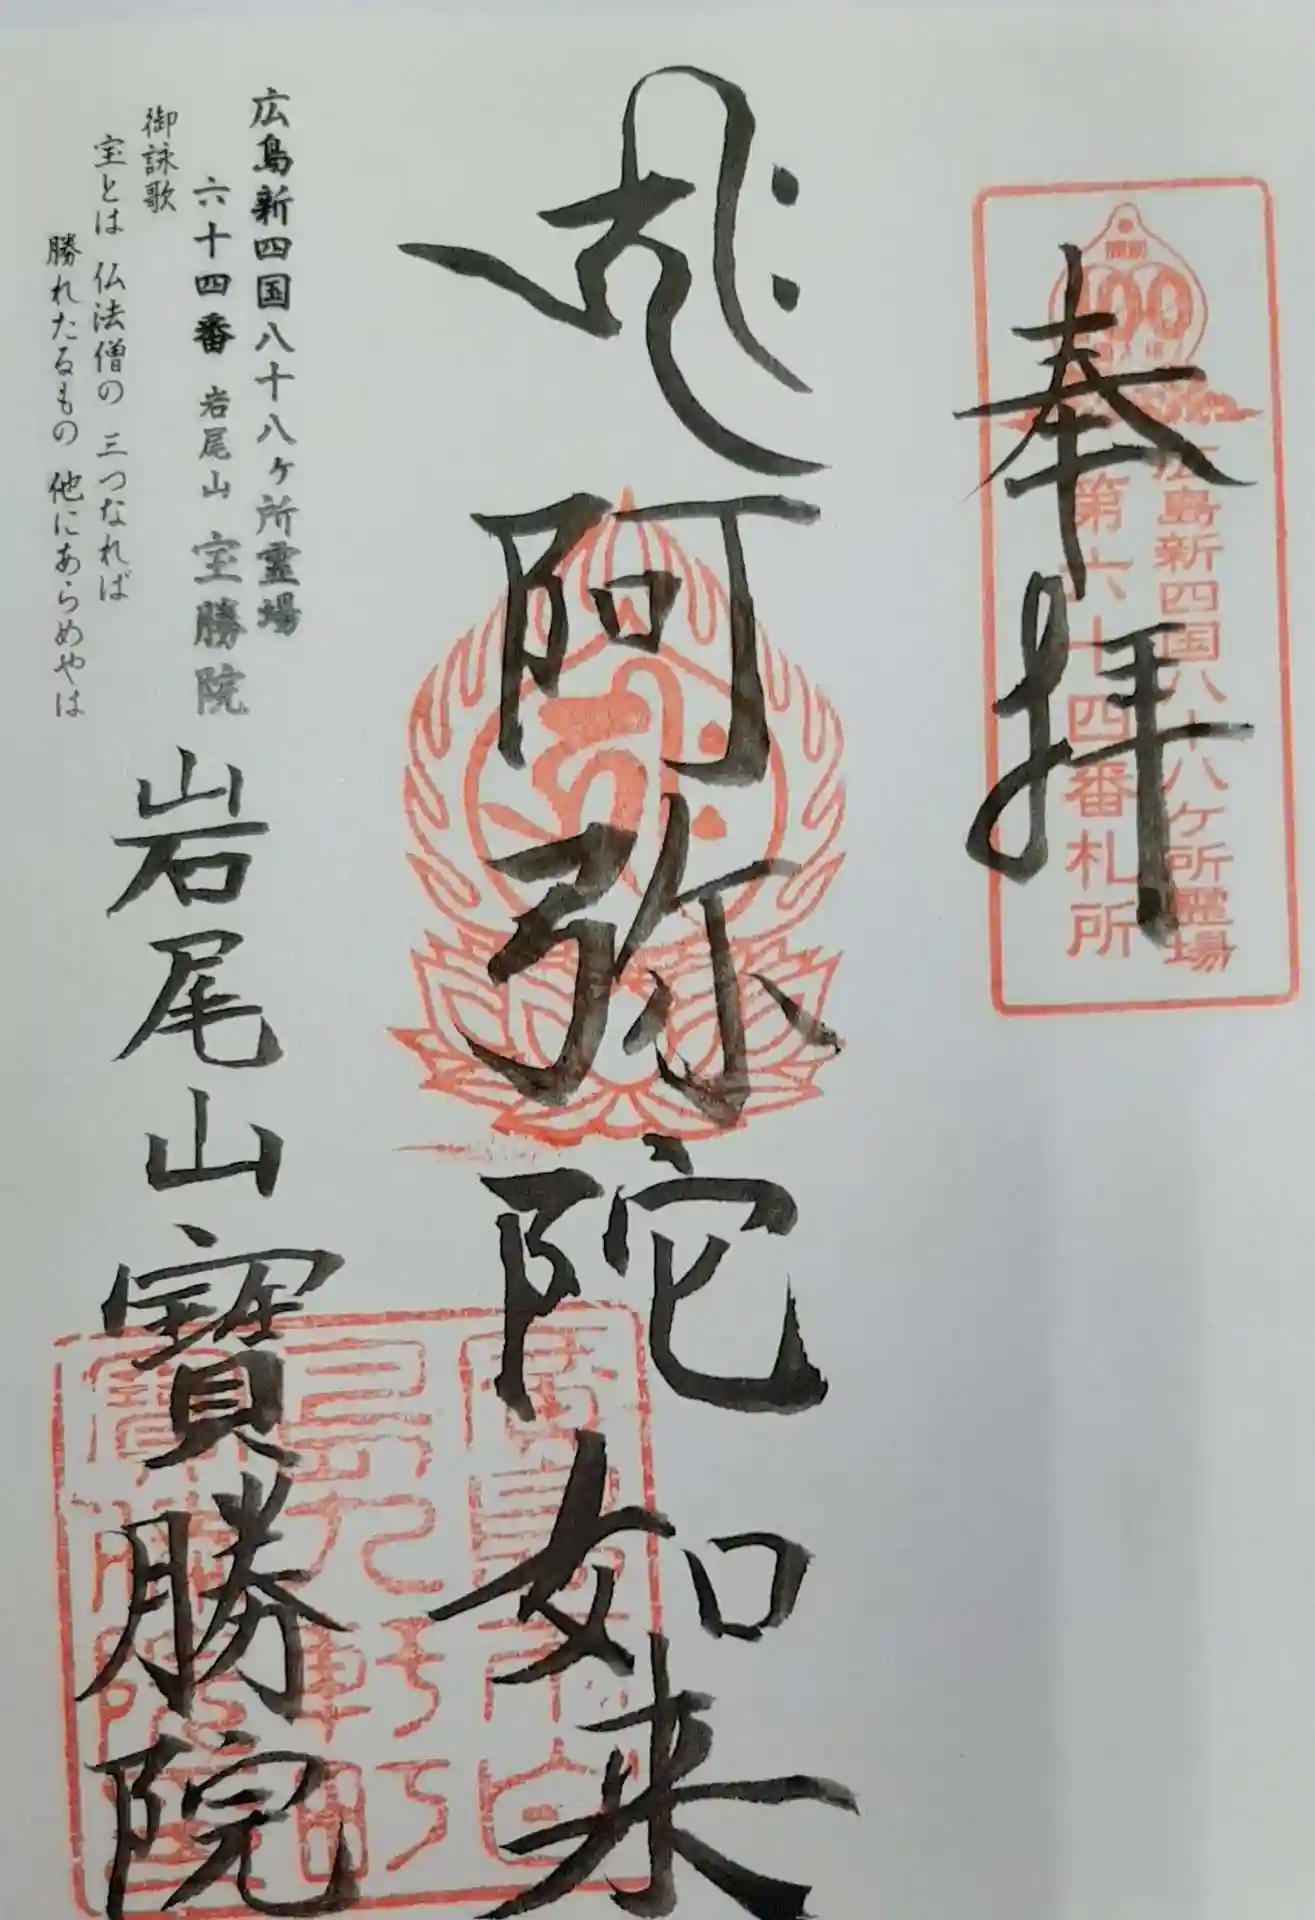 奉拝
開創
100
広島新四国八十八ヶ所霊場
第六十四番札所
阿弥陀如来
岩尾山寶勝院
広島新四国八十八ヶ所霊場
六十四番 岩尾山 宝勝院
御詠歌
宝とは 仏法僧の 三つなれば
勝れたるもの 他にあらめやは